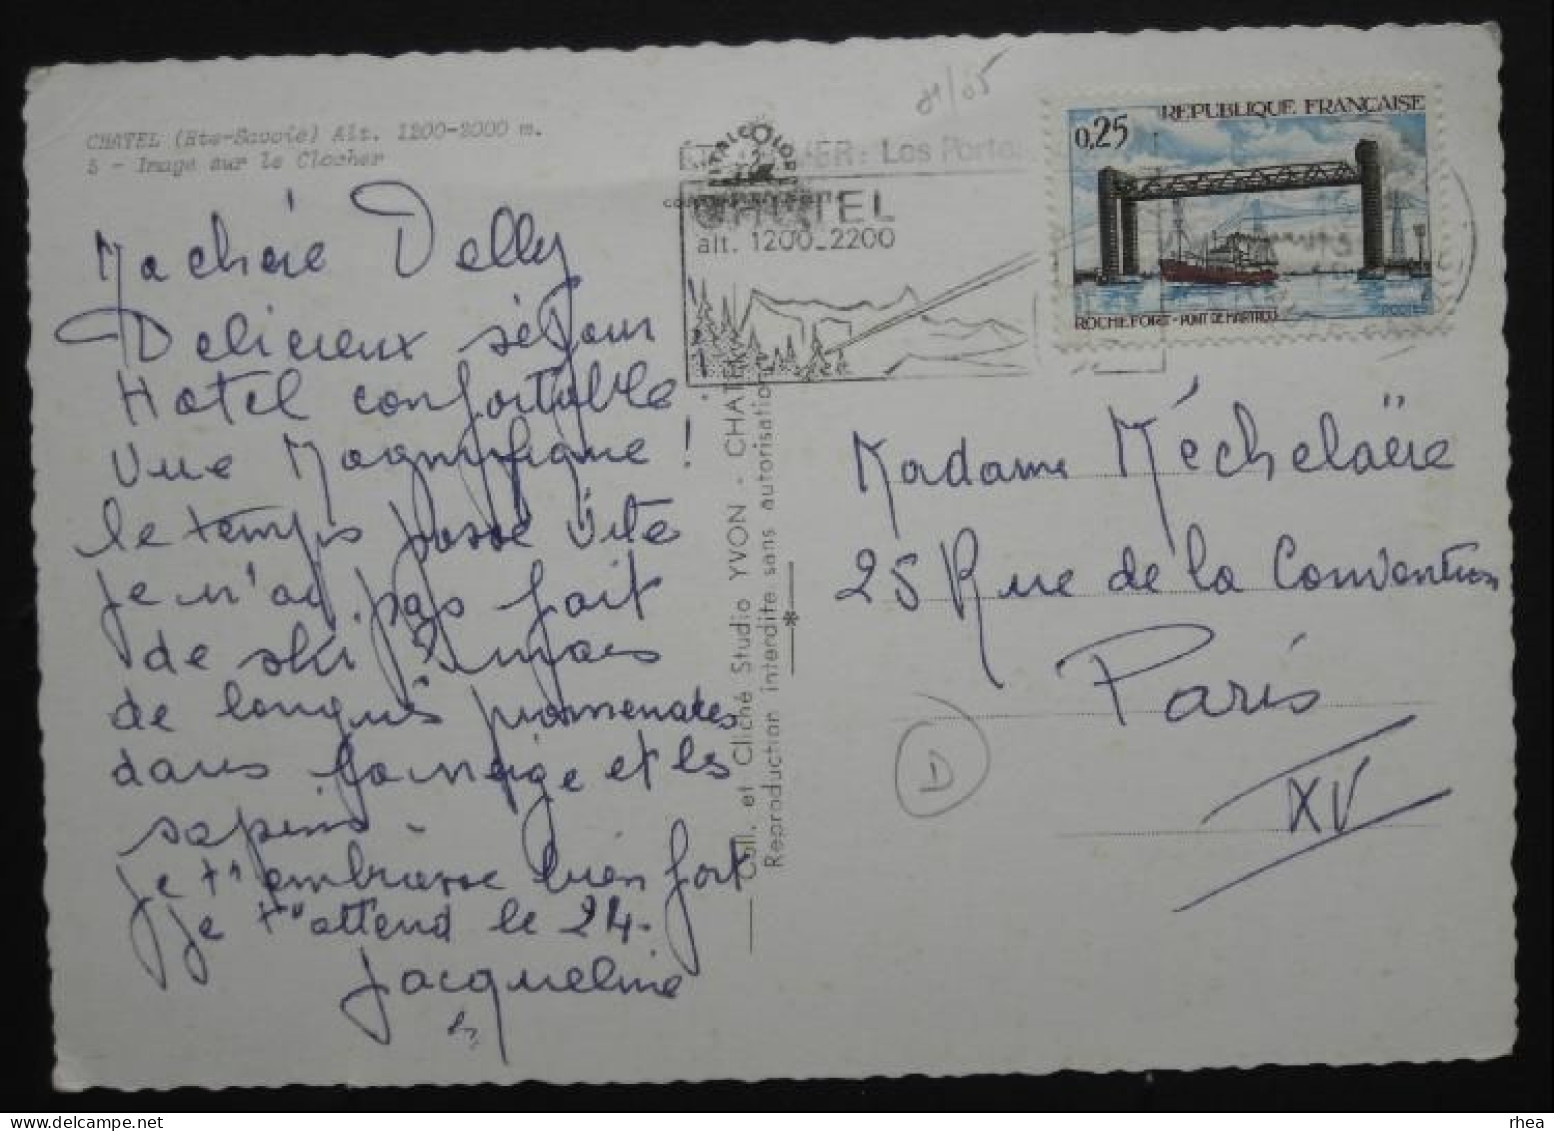 CHATEL (Hte-Savoie) Alt. 1200-2000 m.
5 - Image sur le Clocher
Ma chérie Delly
Délicieux séjour
Hotel confortable.
Vue Magnifique !
le temps passe vite
je n'ai pas fait
de ski mais
de longues promenades
dans la neige et les
sapins -
je t'embrasse bien fort
je t'attend le 24.
Jacqueline
Coll. et Cliché Studio YVON - CHATEL
Reproduction interdite sans autorisation
01/05
CHATEL
alt. 1200_2200
REPUBLIQUE FRANÇAISE
0,25
ROCHEFORT - PONT DE MARTROU
POSTES
Madame Méchelaëre
25 Rue de la Convention
Paris
XV
D
rhea